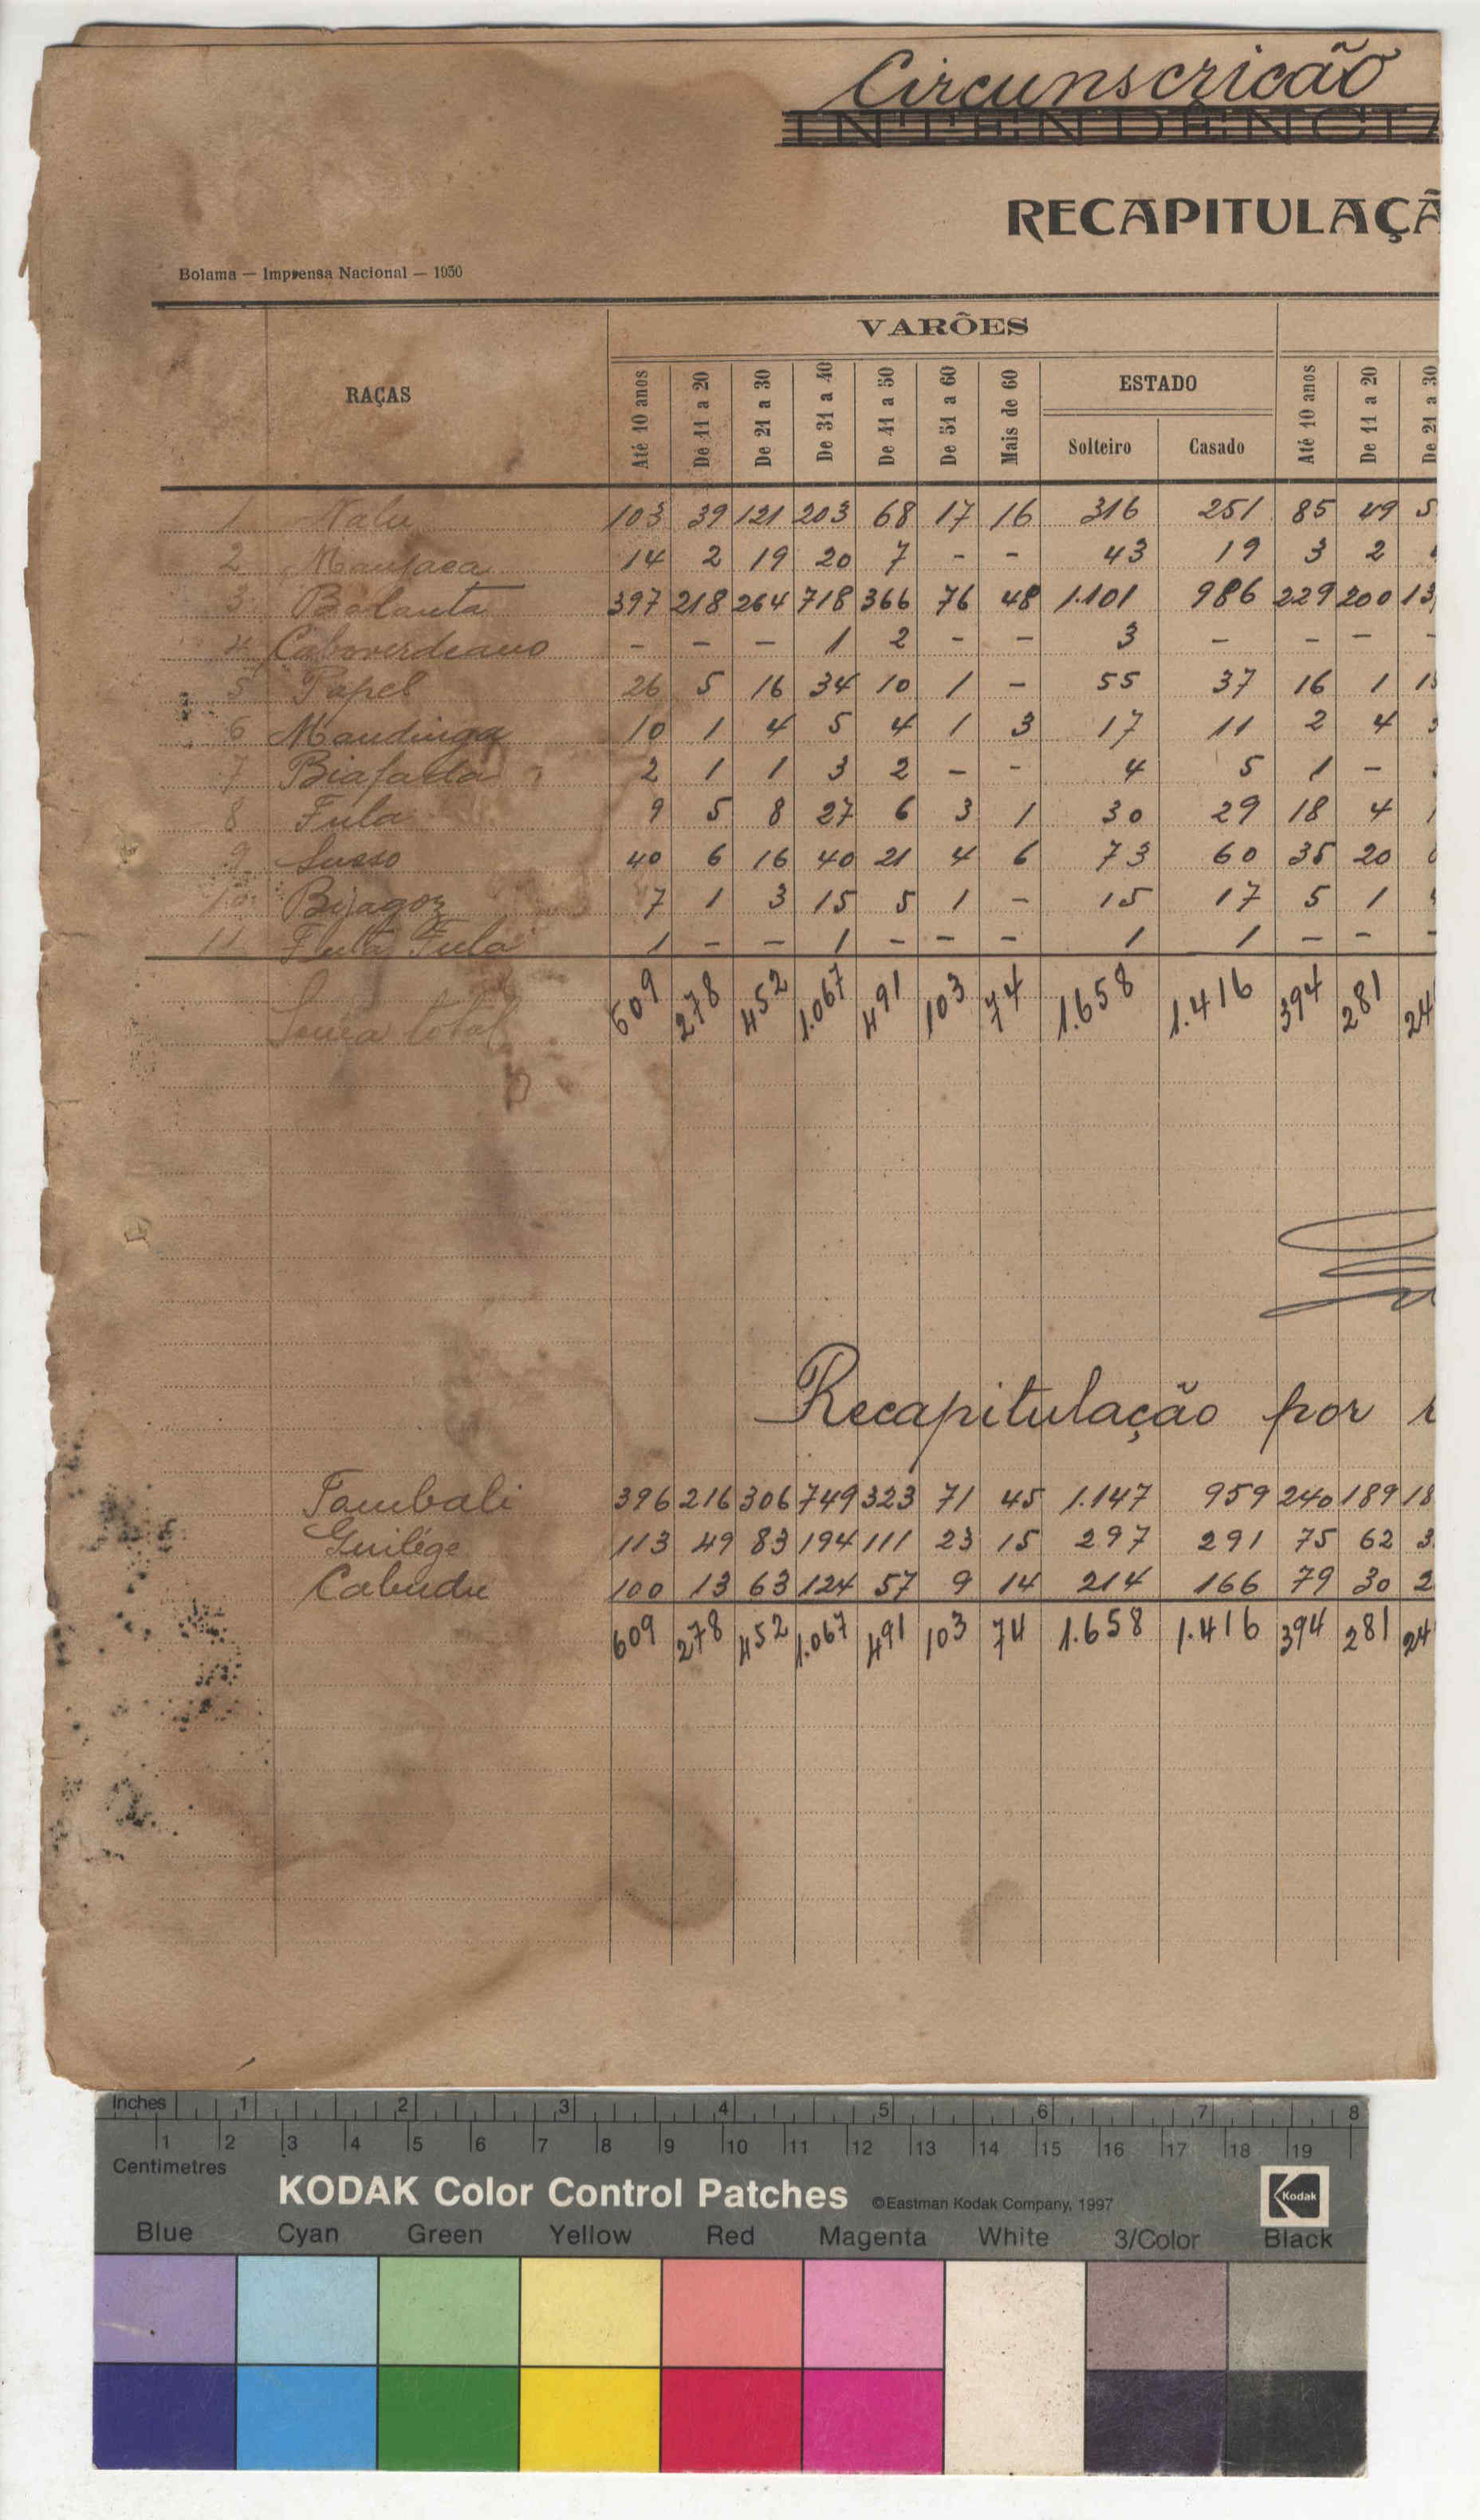 Circunscricão
INTENDÊNCIA
RECAPITULAÇÃ
Bolama — Imprensa Nacional — 1930
VARÕES
RAÇAS Até 10 anos De 11 a 20 De 21 a 30 De 31 a 40 De 41 a 50 De 51 a 60 Mais de 60 ESTADO Até 10 anos De 11 a 20 De 21 a 30
Solteiro Casado
1 Nalu 103 39 121 203 68 17 16 316 251 85 49 5
2 Manjaca 14 2 19 20 7 - - 43 19 3 2
3 Balanta 397 218 264 718 366 76 48 1.101 986 229 200 13
4 Caboverdeano - - - 1 2 - - 3 - - - -
5 Papel 26 5 16 34 10 1 - 55 37 16 1 1
6 Mandinga 10 1 4 5 4 1 3 17 11 2 4
7 Biafada 2 1 1 3 2 - - 4 5 1 -
8 Fula 9 5 8 27 6 3 1 30 29 18 4 1
9 Susso 40 6 16 40 21 4 6 73 60 35 20
10 Bijagoz 7 1 3 15 5 1 - 15 17 5 1
11 Futa Fula 1 - - 1 - - - 1 1 - - -
Soma total 609 278 452 1.067 491 103 74 1.658 1.416 394 281 24
Recapitulação por r
Tombali 396 216 306 749 323 71 45 1.147 959 240 189 18
Guilége 113 49 83 194 111 23 15 297 291 75 62 3
Cabudu 100 13 63 124 57 9 14 214 166 79 30 2
609 278 452 1.067 491 103 74 1.658 1.416 394 281 24
Inches 1 2 3 4 5 6 7 8
1 2 3 4 5 6 7 8 9 10 11 12 13 14 15 16 17 18 19
Centimetres
KODAK Color Control Patches ©Eastman Kodak Company, 1997 Kodak
Blue Cyan Green Yellow Red Magenta White 3/Color Black